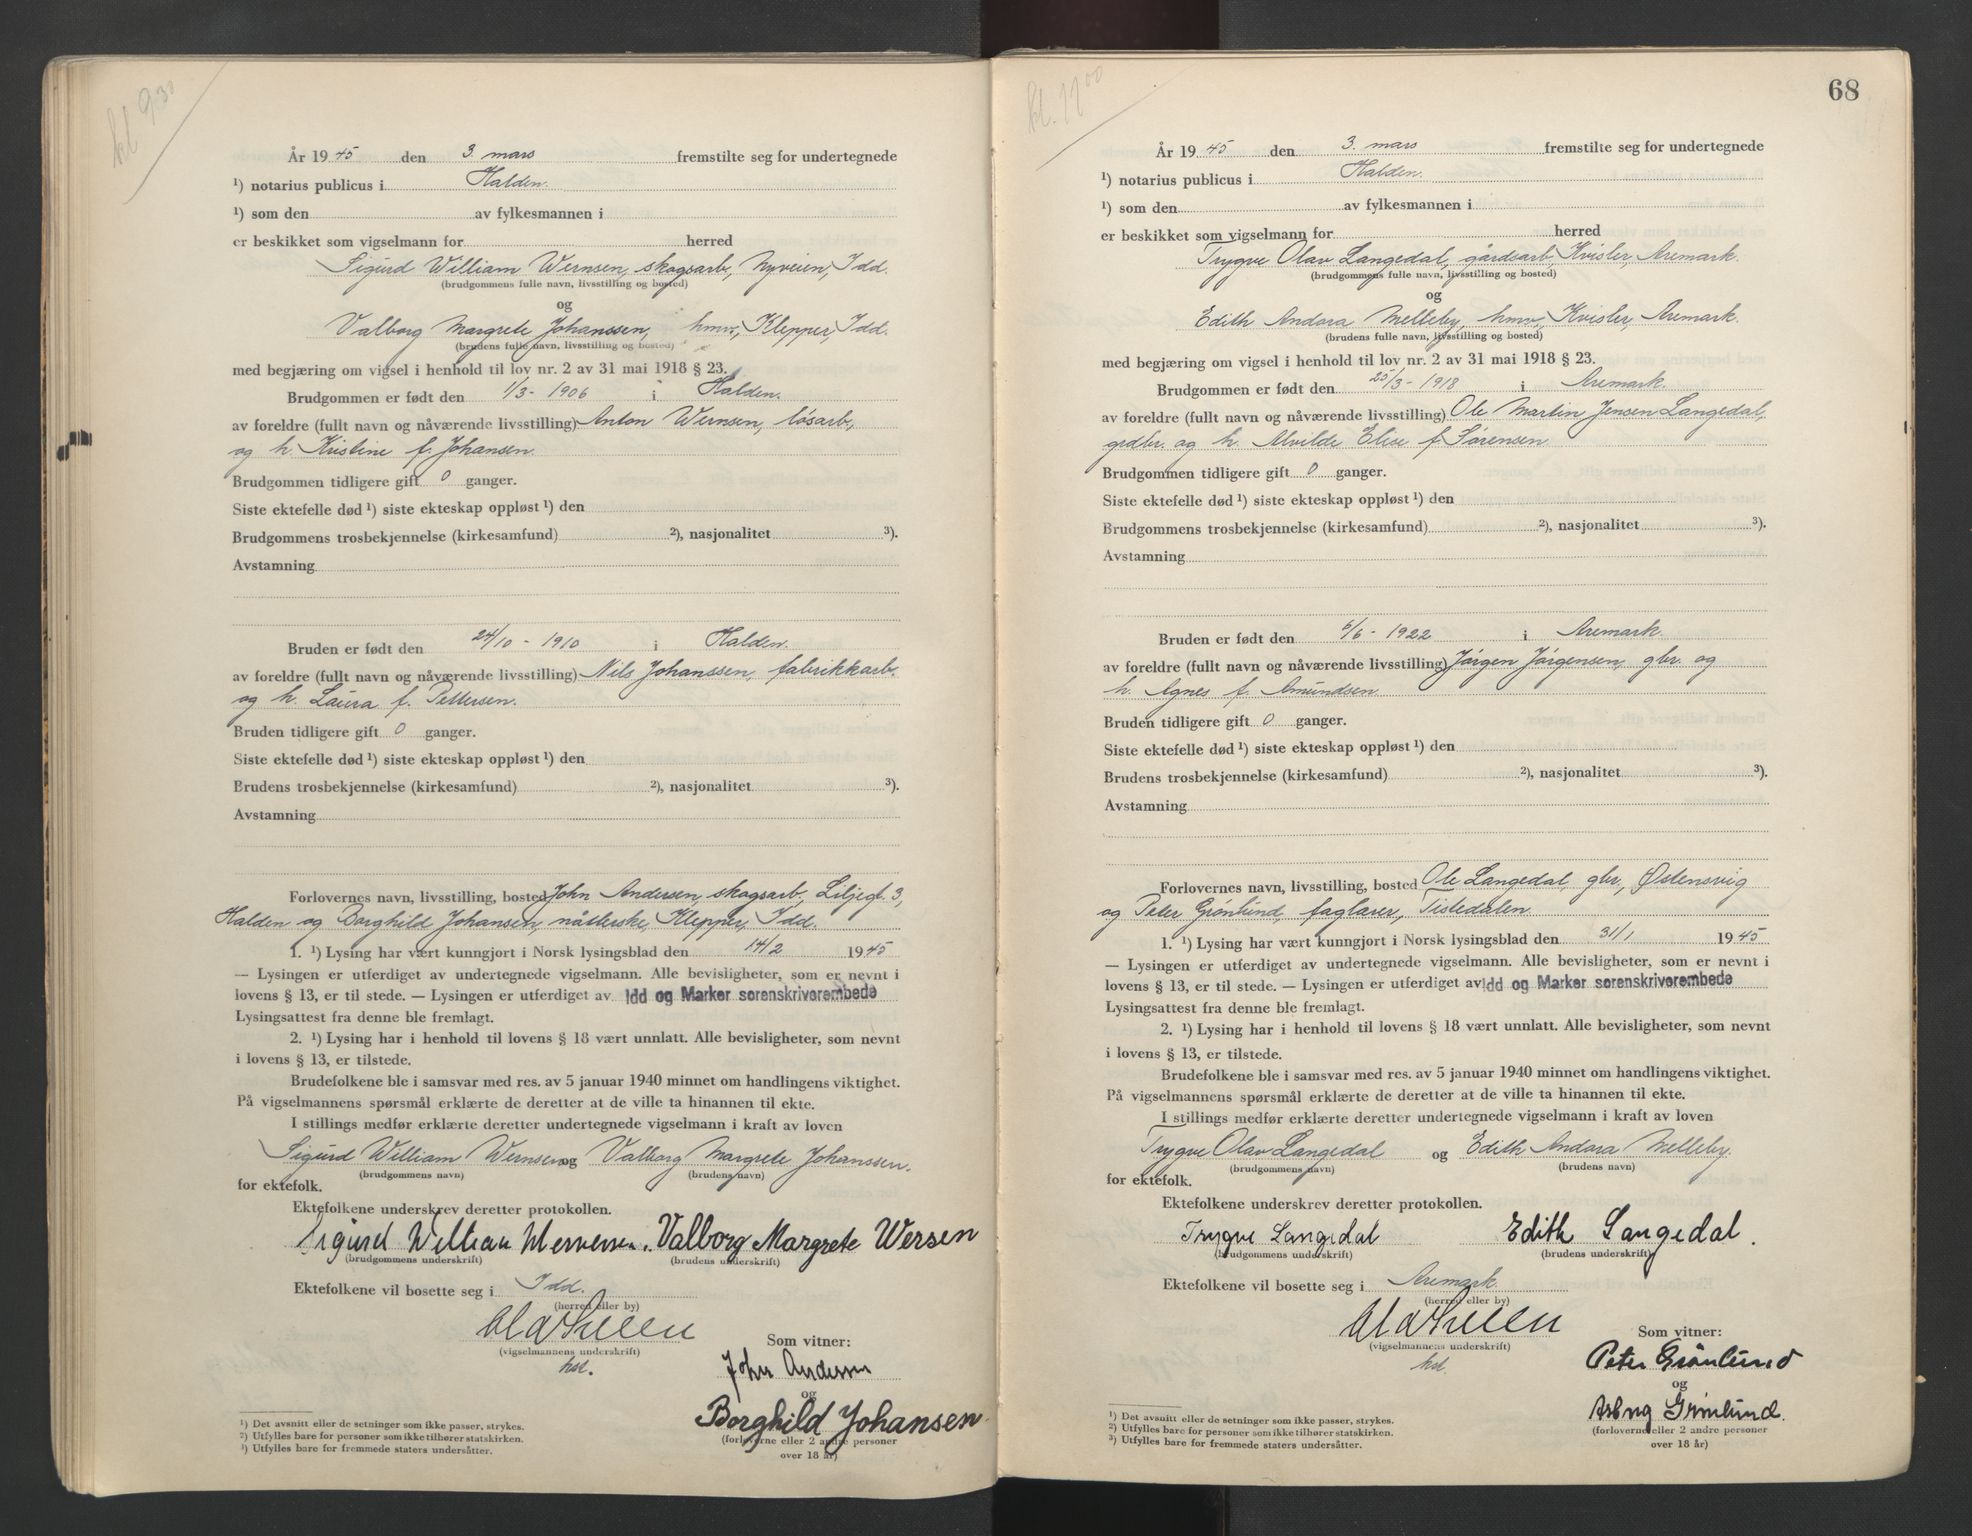 kl. 9.30
År 1945 den 3. mars fremstilte seg for undertegnede
¹) notarius publicus i Halden.
¹) som den av fylkesmannen i
er beskikket som vigselmann for herred
Sigurd William Wernsen, skogsarb., Nyveien, Idd.
(brudgommens fulle navn, livsstilling og bosted)
og
Valborg Margrete Johanssen, hmv., Klepper, Idd.
(brudens fulle navn, livsstilling og bosted)
med begjæring om vigsel i henhold til lov nr. 2 av 31 mai 1918 § 23.
Brudgommen er født den 1/3 - 1906 i Halden.
av foreldre (fullt navn og nåværende livsstilling) Anton Wernsen, løsarb.,
og h. Kristine f. Johansen.
Brudgommen tidligere gift 0 ganger.
Siste ektefelle død ¹) siste ekteskap oppløst ¹) den
Brudgommens trosbekjennelse (kirkesamfund) ²), nasjonalitet ³).
Avstamning
Bruden er født den 24/10 - 1910 i Halden.
av foreldre (fullt navn og nåværende livsstilling) Nils Johanssen, fabrikkarb.
og h. Laura f. Pettersen.
Bruden tidligere gift 0 ganger.
Siste ektefelle død ¹) siste ekteskap oppløst ¹) den
Brudens trosbekjennelse (kirkesamfund) ²), nasjonalitet ³).
Avstamning
Forlovernes navn, livsstilling, bosted John Andersen, skogsarb., Liljegt. 3,
Halden og Borghild Johansen, nåtlerske, Klepper, Idd.
1. ¹) Lysing har vært kunngjort i Norsk lysingsblad den 14/2 1945
— Lysingen er utferdiget av undertegnede vigselmann. Alle bevisligheter, som er nevnt i
lovens § 13, er til stede. — Lysingen er utferdiget av Idd og Marker sorenskriverembede
Lysingsattest fra denne ble fremlagt.
2. ¹) Lysing har i henhold til lovens § 18 vært unnlatt. Alle bevisligheter, som nevnt
i lovens § 13, er tilstede.
Brudefolkene ble i samsvar med res. av 5 januar 1940 minnet om handlingens viktighet.
På vigselmannens spørsmål erklærte de deretter at de ville ta hinannen til ekte.
I stillings medfør erklærte deretter undertegnede vigselmann i kraft av loven
Sigurd William Wernsen og Valborg Margrete Johanssen.
(brudgommens navn) (brudens navn)
for ektefolk.
Ektefolkene underskrev deretter protokollen.
Sigurd William Valborg Margrete Wersen
(brudgommens underskrift) (brudens underskrift)
Ektefolkene vil bosette seg i Idd.
(herred eller by)
Som vitner:
(vigselmannens underskrift)
hst.
John Andersen
og
Borghild Johansen
(forloverne eller 2 andre personer
over 18 år)
¹) Det avsnitt eller de setninger som ikke passer, strykes.
²) Utfylles bare for personer som ikke tilhører statskirken.
³) Utfylles bare for fremmede staters undersåtter.
68
kl. 11.00
År 1945 den 3. mars fremstilte seg for undertegnede
¹) notarius publicus i Halden.
¹) som den av fylkesmannen i
er beskikket som vigselmann for herred
Trygve Olav Langedal, gårdsarb., Kvisler, Aremark.
(brudgommens fulle navn, livsstilling og bosted)
og
Edith Andora Melleby, hmv., Kvisler, Aremark.
(brudens fulle navn, livsstilling og bosted)
med begjæring om vigsel i henhold til lov nr. 2 av 31 mai 1918 § 23.
Brudgommen er født den 25/3 - 1918 i Aremark.
av foreldre (fullt navn og nåværende livsstilling) Ole Martin Jensen Langedal,
grdbr. og h. Alvilde Elise f. Sørensen.
Brudgommen tidligere gift 0 ganger.
Siste ektefelle død ¹) siste ekteskap oppløst ¹) den
Brudgommens trosbekjennelse (kirkesamfund) ²), nasjonalitet ³).
Avstamning
Bruden er født den 6/6 - 1922 i Aremark.
av foreldre (fullt navn og nåværende livsstilling) Jørgen Jørgensen, gbr. og
h. Agnes f. Amundsen.
Bruden tidligere gift 0 ganger.
Siste ektefelle død ¹) siste ekteskap oppløst ¹) den
Brudens trosbekjennelse (kirkesamfund) ²), nasjonalitet ³).
Avstamning
Forlovernes navn, livsstilling, bosted Ole Langedal, gbr., Østensvig
og Peter Grønlund, faglærer, Tistedalen.
1. ¹) Lysing har vært kunngjort i Norsk lysingsblad den 31/1 1945
— Lysingen er utferdiget av undertegnede vigselmann. Alle bevisligheter, som er nevnt i
lovens § 13, er til stede. — Lysingen er utferdiget av Idd og Marker sorenskriverembede
Lysingsattest fra denne ble fremlagt.
2. ¹) Lysing har i henhold til lovens § 18 vært unnlatt. Alle bevisligheter, som nevnt
i lovens § 13, er tilstede.
Brudefolkene ble i samsvar med res. av 5 januar 1940 minnet om handlingens viktighet.
På vigselmannens spørsmål erklærte de deretter at de ville ta hinannen til ekte.
I stillings medfør erklærte deretter undertegnede vigselmann i kraft av loven
Trygve Olav Langedal og Edith Andora Melleby.
(brudgommens navn) (brudens navn)
for ektefolk.
Ektefolkene underskrev deretter protokollen.
Trygve Langedal Edith Langedal.
(brudgommens underskrift) (brudens underskrift)
Ektefolkene vil bosette seg i Aremark.
(herred eller by)
Som vitner:
(vigselmannens underskrift)
hst.
Peter Grønlund
og
Grønlund.
(forloverne eller 2 andre personer
over 18 år)
¹) Det avsnitt eller de setninger som ikke passer, strykes.
²) Utfylles bare for personer som ikke tilhører statskirken.
³) Utfylles bare for fremmede staters undersåtter.